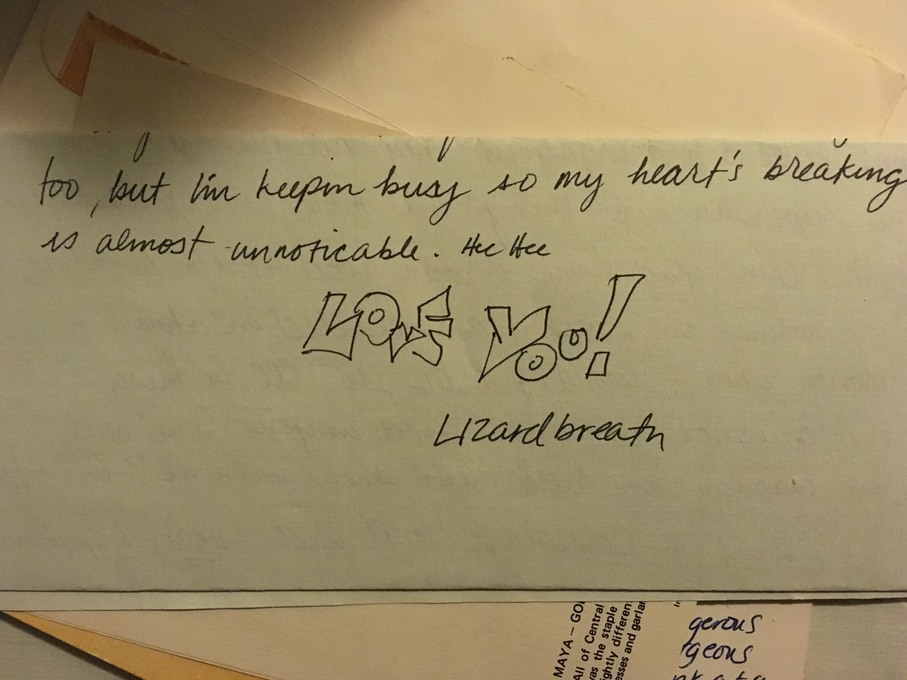 too, but I'm keepin busy so my heart's breaking
is almost unnoticable. Hee Hee
LOVE YOU!
Lizardbreath
MAYA – GO
All of Central
was the staple
ghtly differen
esses and garla
gerous
geous